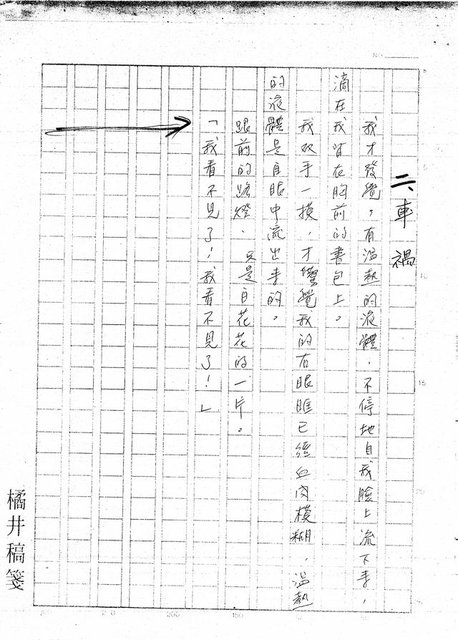 二、車禍
我才發覺，有溫熱的液體，不停地自我臉上流下來，
滴在我背在胸前的書包上。
我双手一摸，才驚覺我的右眼眶已經血肉模糊 溫熱
的液體是自眼中流出來的。
眼前的路燈，只是白花花的一片。
「我看不見了！我看不見了！」
橘井稿箋
NO.